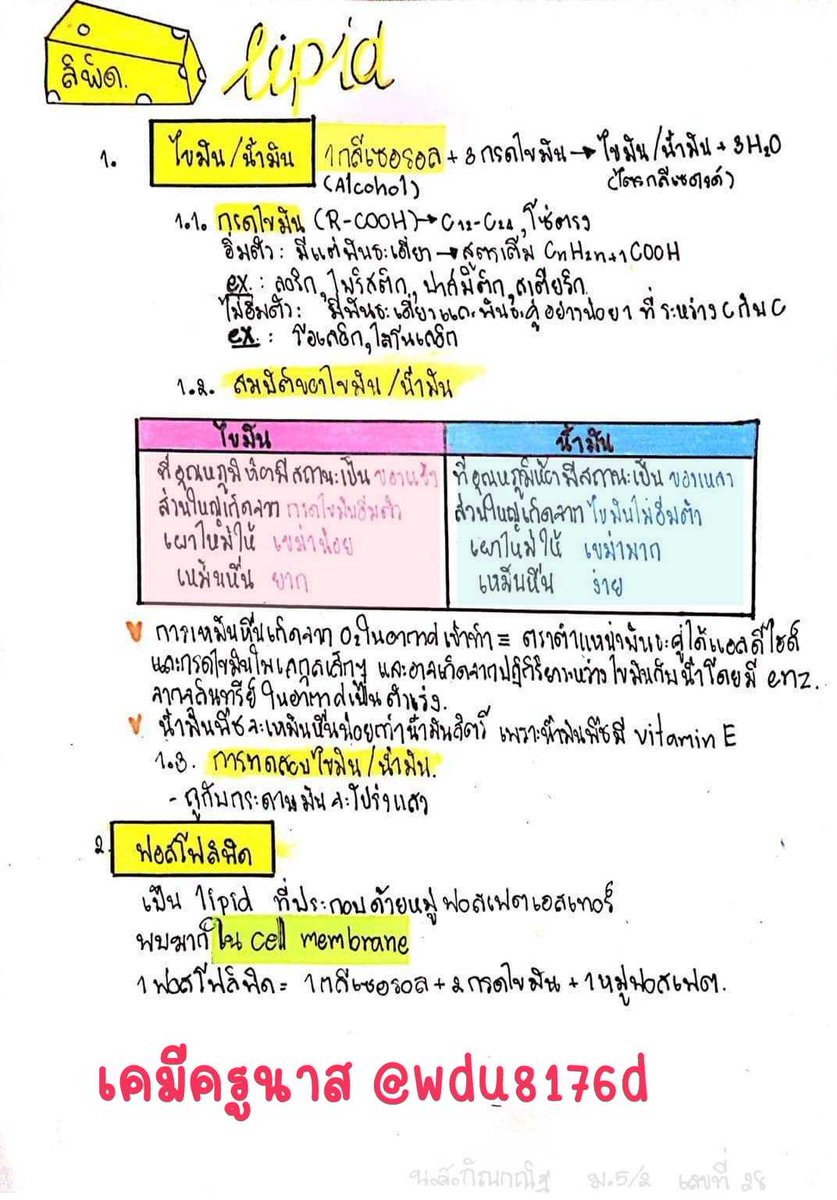 ลิพิด.
lipid
1. ไขมัน/น้ำมัน 1กลีเซอรอล + 3กรดไขมัน → ไขมัน/น้ำมัน + 3H₂O
(Alcohol) (ไตรกลีเซอไรด์)
1.1. กรดไขมัน (R-COOH) → C₁₂-C₂₄, โซ่ตรง
อิ่มตัว : มีแต่พันธะเดี่ยว → สูตรเต็ม CnH2n+1COOH
ex. : ลอริก, ไมริสติก, ปาล์มิติก, สเตียริก
ไม่อิ่มตัว : มีพันธะเดี่ยวและพันธะคู่อย่างน้อย 1 ที่ระหว่าง C กับ C
ex. : โอเลอิก, ไลโนเลอิก
1.2. สมบัติของไขมัน/น้ำมัน
ไขมัน น้ำมัน
ที่อุณหภูมิห้องมีสถานะเป็น ของแข็ง ที่อุณหภูมิห้องมีสถานะเป็น ของเหลว
ส่วนใหญ่เกิดจาก กรดไขมันอิ่มตัว ส่วนใหญ่เกิดจาก ไขมันไม่อิ่มตัว
เผาไหม้ให้ เขม่าน้อย เผาไหม้ให้ เขม่ามาก
เหม็นหืน ยาก เหม็นหืน ง่าย
การเหม็นหืนเกิดจาก O₂ ในอากาศเข้าทำ ≡ ตรงตำแหน่งพันธะคู่ได้แอลดีไฮด์
และกรดไขมันโมเลกุลเล็กๆ และอาจเกิดจากปฏิกิริยาระหว่างไขมันกับน้ำโดยมี enz.
จากจุลินทรีย์ในอากาศเป็นตัวเร่ง.
น้ำมันพืชจะเหม็นหืนน้อยกว่าน้ำมันสัตว์ เพราะน้ำมันพืชมี vitamin E
1.3. การทดสอบไขมัน/น้ำมัน.
- ถูกับกระดาษมันจะโปร่งแสง
2. ฟอสโฟลิพิด
เป็น lipid ที่ประกอบด้วยหมู่ฟอสเฟตเอสเทอร์
พบมากใน cell membrane
1 ฟอสโฟลิพิด = 1กลีเซอรอล + 2กรดไขมัน + 1หมู่ฟอสเฟต.
เคมีครูนาส @wdu8176d
ม.5/2 เลขที่ 28